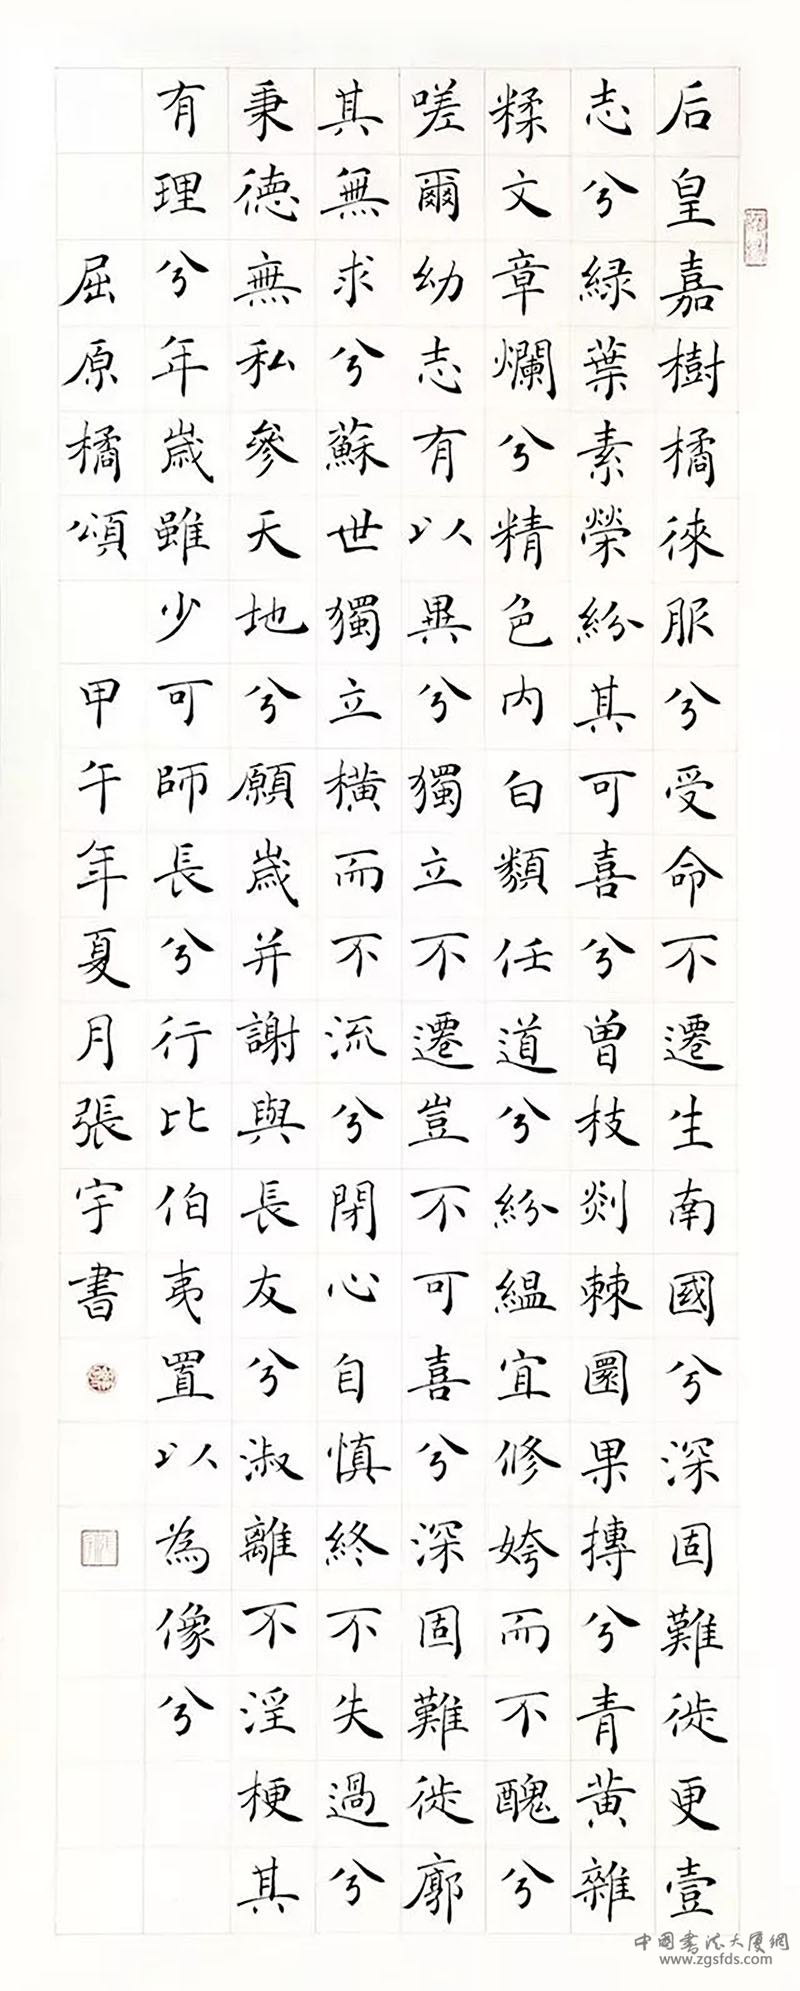 后皇嘉樹橘徠服兮受命不遷生南國兮深固難徙更壹
志兮緑葉素榮紛其可喜兮曾枝剡棘圜果摶兮青黃雜
糅文章爛兮精色内白類任道兮紛緼宜修姱而不醜兮
嗟爾幼志有以異兮獨立不遷豈不可喜兮深固難徙廓
其無求兮蘇世獨立橫而不流兮閉心自慎終不失過兮
秉德無私參天地兮願歲并謝與長友兮淑離不淫梗其
有理兮年歲雖少可師長兮行比伯夷置以為像兮
屈原橘頌 甲午年夏月張宇書
中國書法大厦網
www.zgsfds.com